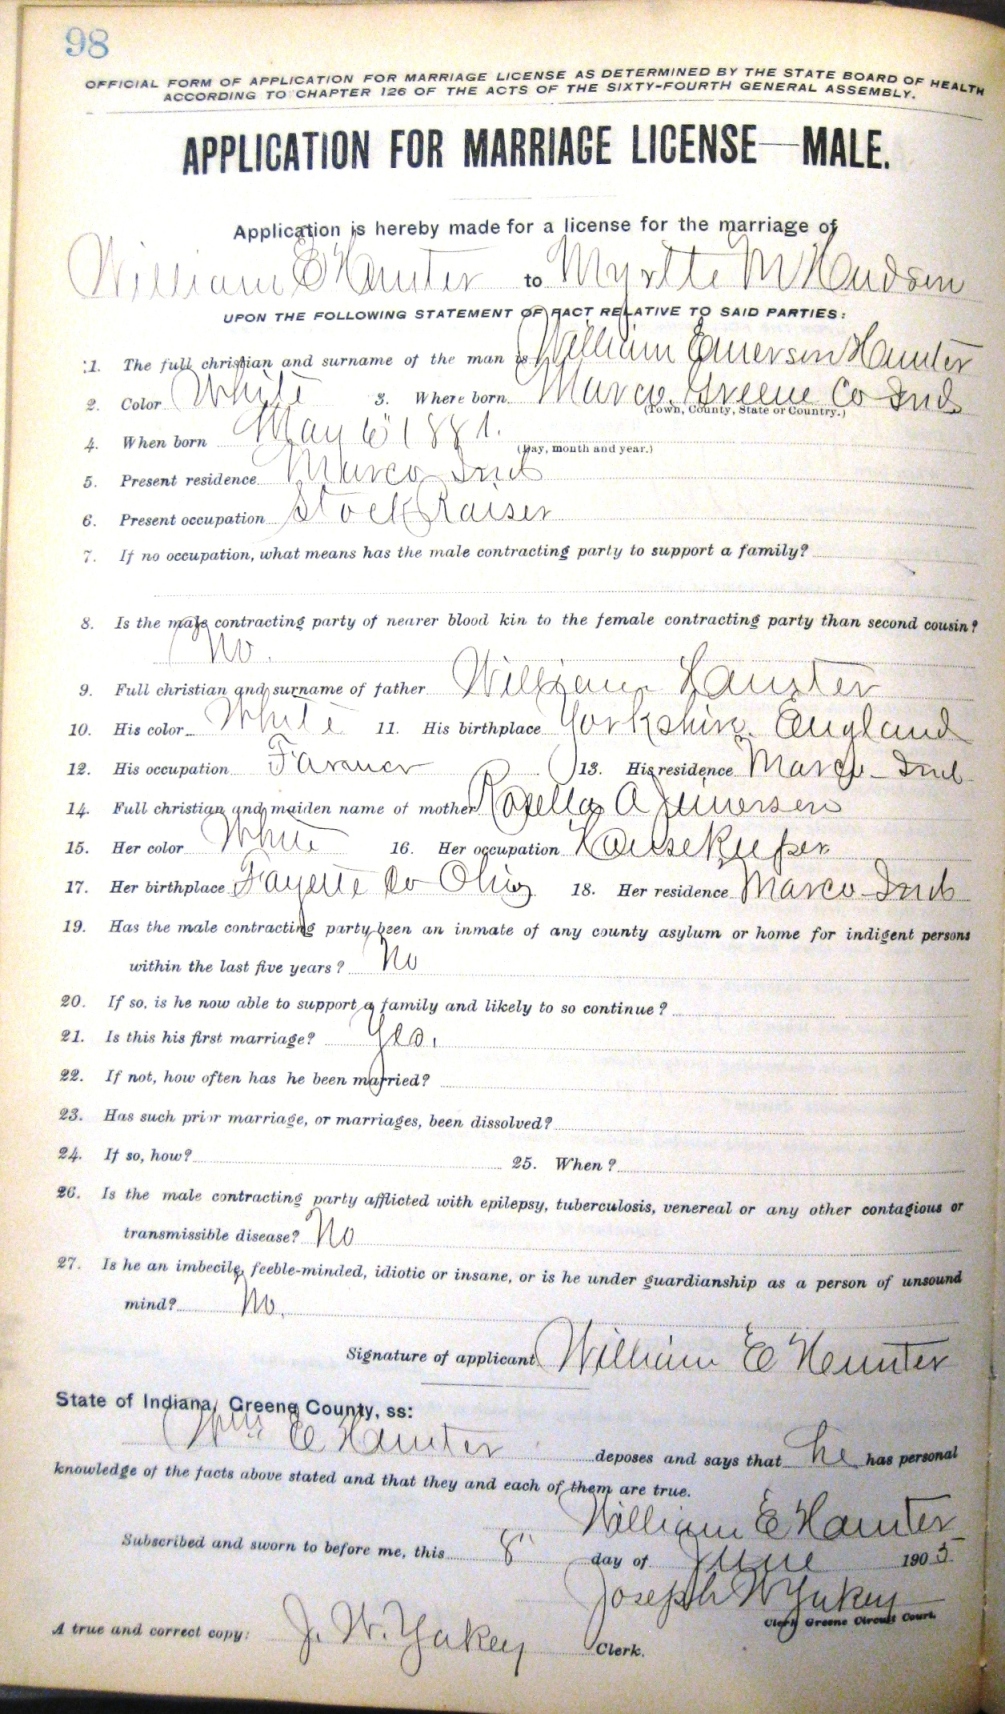 98
OFFICIAL FORM OF APPLICATION FOR MARRIAGE LICENSE AS DETERMINED BY THE STATE BOARD OF HEALTH
ACCORDING TO CHAPTER 126 OF THE ACTS OF THE SIXTY-FOURTH GENERAL ASSEMBLY.
APPLICATION FOR MARRIAGE LICENSE—MALE.
Application is hereby made for a license for the marriage of
William E Hunter to Myrtle M Hudson
UPON THE FOLLOWING STATEMENT OF FACT RELATIVE TO SAID PARTIES:
1. The full christian and surname of the man is William Emerson Hunter
2. Color White 3. Where born Marco Greene Co Ind
(Town, County, State or Country.)
4. When born May 6" 1881.
(Day, month and year.)
5. Present residence Marco Ind
6. Present occupation Stock Raiser
7. If no occupation, what means has the male contracting party to support a family?
8. Is the male contracting party of nearer blood kin to the female contracting party than second cousin?
No.
9. Full christian and surname of father William Hunter
10. His color White 11. His birthplace Yorkshire England
12. His occupation Farmer 13. His residence Marco Ind
14. Full christian and maiden name of mother Rosella A
15. Her color White 16. Her occupation Housekeeper
17. Her birthplace Fayette Co Ohio 18. Her residence Marco Ind
19. Has the male contracting party been an inmate of any county asylum or home for indigent persons
within the last five years? No
20. If so, is he now able to support a family and likely to so continue?
21. Is this his first marriage? Yes.
22. If not, how often has he been married?
23. Has such prior marriage, or marriages, been dissolved?
24. If so, how? 25. When?
26. Is the male contracting party afflicted with epilepsy, tuberculosis, venereal or any other contagious or
transmissible disease? No
27. Is he an imbecile, feeble-minded, idiotic or insane, or is he under guardianship as a person of unsound
mind? No.
Signature of applicant William E Hunter
State of Indiana, Greene County, ss:
Wm E Hunter deposes and says that he has personal
knowledge of the facts above stated and that they and each of them are true.
William E Hunter
Subscribed and sworn to before me, this 8" day of June 1905
Joseph W Yakey
Clerk Greene Circuit Court.
A true and correct copy: J. W. Yakey Clerk.